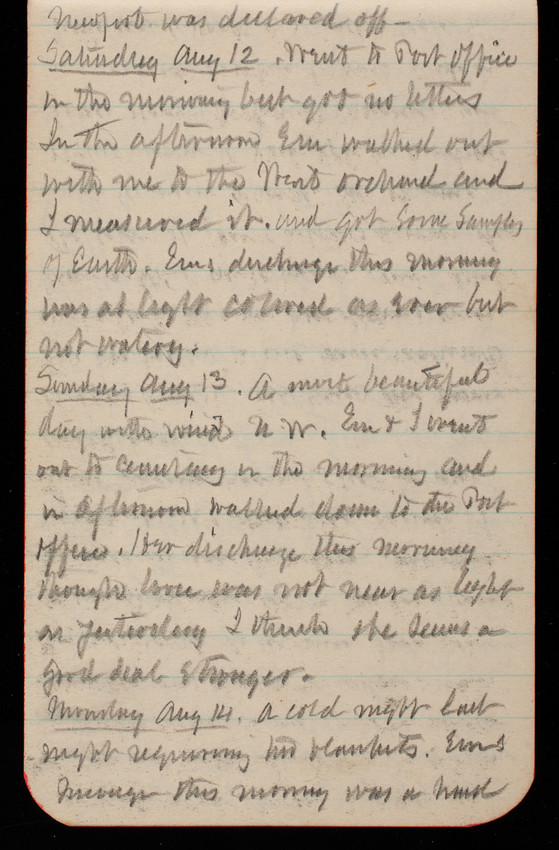 Newport was declared off -
Saturday Aug 12. Went to Post Office
in the morning but got no letters
In the afternoon Em walked out
with me to the West orchard and
I measured it. and got some Samples
of Earth. Em's discharge this morning
was as light colored as ever but
not watery.
Sunday Aug 13. A most beautiful
day with wind N W. Em & I went
out to cemetery in the morning and
in afternoon walked down to the Post
Office. Her discharge this morning
though loose was not near as light
as yesterday I think she seems a
good deal stronger.
Monday Aug 14. A cold night last
night requiring two blankets. Em's
this morning was a hard